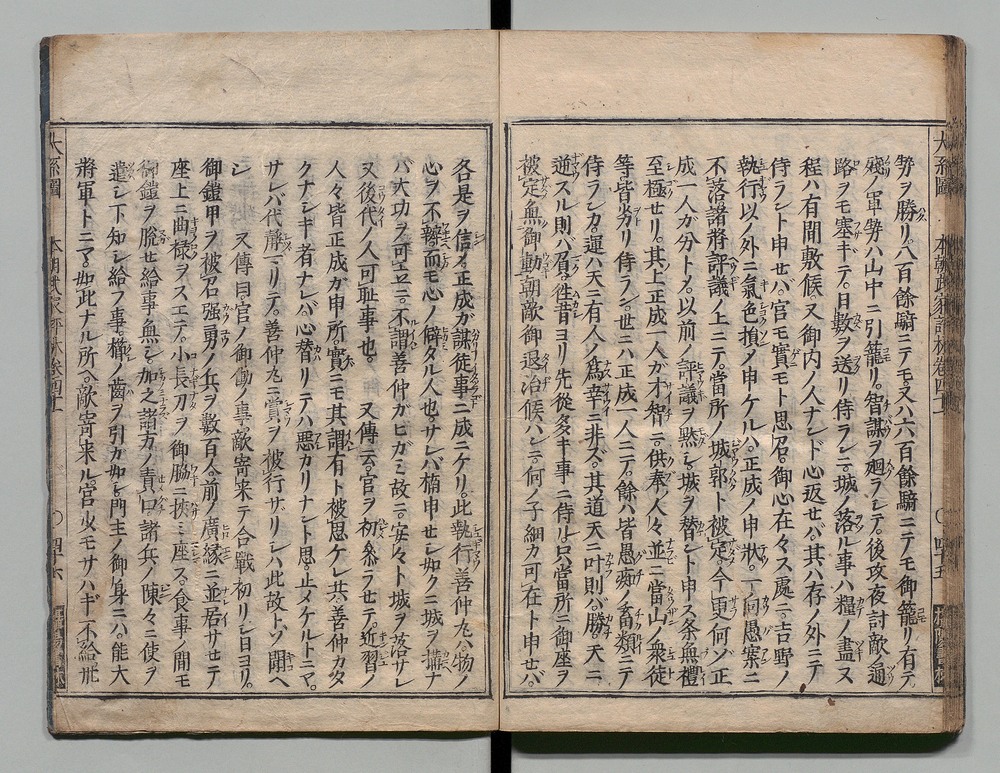 勢ヲ勝リ。八百餘騎ニテモ又六百餘騎ニテモ御籠リ有テ。
殘ノ軍勢ハ山中ニ引籠リ。智謀ヲ廻ラシテ。後攻夜討敵ノ通
路ヲモ塞ギテ。日數ヲ送リ侍ラシニ。城ノ落ル事ハ糧ノ盡ス
程ハ有間敷候又御内ノ人ナンド心返セバ。其ハ存ノ外ニテ
侍ラント申セバ。官モ實モト思召。御心在々ス處ニ。吉野ノ
執行以ノ外ニ氣色損メ申ケルハ。正成ノ申狀。一向愚案ニ
不落諸將評議ノ上ニテ。當所ノ城郭ト被定。今更何ゾ正
成一人が分トメ。以前ノ評議ヲ黙シ。城ヲ替ント申ス条。無禮
至極セリ。其上正成一人が才智ニ。供奉ノ人々並ニ當山ノ衆徒
等皆劣リ侍ラン。世ニハ正成一人ニテ。餘ハ皆愚痴ノ畜類ニテ
侍ランカ。運ハ天ニ有人ノ爲幸ニ非ズ。其道天ニ叶則バ勝。天ニ
逆スル則バ負。徃昔ヨリ先從多キ事ニ侍リ。只當所ニ御座ヲ
被定無御動。朝敵御退治候ハンニ。何ノ子細カ可在ト申セバ。
各是ヲ信メ正成が謀徒事ニ成ニケリ。此執行善仲丸。物ノ
心ヲ不辨而モ心ノ僻タル人也。サレバ楠申セシ如クニ城ヲ構ナ
バ大功ヲ可立ニ。不謂善仲ガヒガミ故ニ。安々ト城ヲ落サレ
又後代ノ人ニ可耻事也。 又傳云。官ヲ初參ラセテ。近習ノ
人々皆正成が申所。實ニモ其謂有ト被思ケレ共。善仲カタ
クナシキ者ナレバ。心替リテハ悪カリナント思。止メケルトニマ。
サレバ代靜ニリテ。善仲丸ニ賞ヲ被行ザリシハ此故トゾ聞ヘ
シ 又傳曰。官ノ御働ノ事。敵寄来テ合戰初リシ日ヨリ。
御鎧甲ヲ被召。强勇ノ兵ヲ數百人。前ノ廣縁ニ並居サセテ
座上ニ曲椂ヲスエテ。小長刀ヲ御脇ニ挾ミ座ス。食事ノ間モ
御鎧ヲ脫セ給事無シ。加之諸方ノ責口諸兵ノ陳々ニ使ヲ
遣シ下知シ給フ事。櫛ノ齒ヲ引カ如シ。門主ノ御身ニハ。能大
將軍トニマ。如此ナル所。敵寄来ル。官少モサハギ不給。此
本朝武家評林卷四十
四十五
本朝武家評林卷四十
四十六
大系圖
大系圖